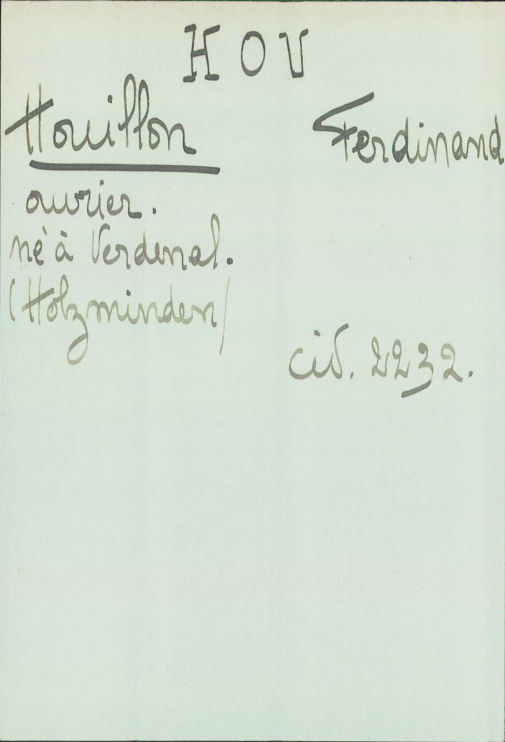 HOV
Houillon Ferdinand
ouvrier.
né à Verdenal.
(Holzminden)
civ. 2232.